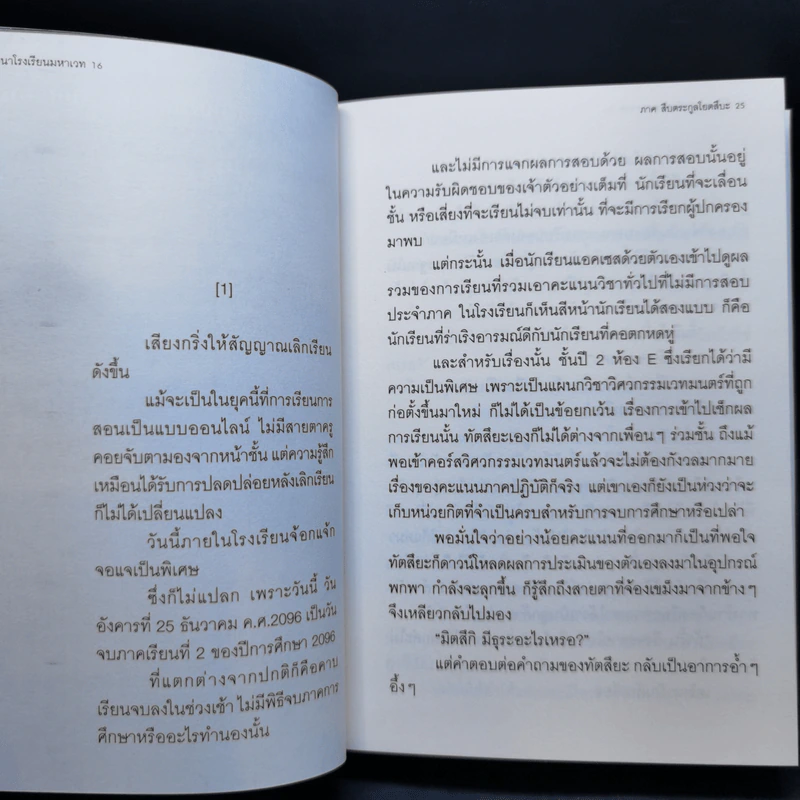 นาโรงเรียนมหาเวท 16
[1]
เสียงกริ่งให้สัญญาณเลิกเรียน
ดังขึ้น
แม้จะเป็นในยุคนี้ที่การเรียนการ
สอนเป็นแบบออนไลน์ ไม่มีสายตาครู
คอยจับตามองจากหน้าชั้น แต่ความรู้สึก
เหมือนได้รับการปลดปล่อยหลังเลิกเรียน
ก็ไม่ได้เปลี่ยนแปลง
วันนี้ภายในโรงเรียนจ้อกแจ้ก
จอแจเป็นพิเศษ
ซึ่งก็ไม่แปลก เพราะวันนี้ วัน
อังคารที่ 25 ธันวาคม ค.ศ.2096 เป็นวัน
จบภาคเรียนที่ 2 ของปีการศึกษา 2096
ที่แตกต่างจากปกติก็คือคาบ
เรียนจบลงในช่วงเช้า ไม่มีพิธีจบภาคการ
ศึกษาหรืออะไรทำนองนั้น
ภาค สืบตระกูลโยตสึบะ 25
และไม่มีการแจกผลการสอบด้วย ผลการสอบนั้นอยู่
ในความรับผิดชอบของเจ้าตัวอย่างเต็มที่ นักเรียนที่จะเลื่อน
ชั้น หรือเสี่ยงที่จะเรียนไม่จบเท่านั้น ที่จะมีการเรียกผู้ปกครอง
มาพบ
แต่กระนั้น เมื่อนักเรียนแอคเซสด้วยตัวเองเข้าไปดูผล
รวมของการเรียนที่รวมเอาคะแนนวิชาทั่วไปที่ไม่มีการสอบ
ประจำภาค ในโรงเรียนก็เห็นสีหน้านักเรียนได้สองแบบ ก็คือ
นักเรียนที่ร่าเริงอารมณ์ดีกับนักเรียนที่คอตกหดหู่
และสำหรับเรื่องนั้น ชั้นปี 2 ห้อง E ซึ่งเรียกได้ว่ามี
ความเป็นพิเศษ เพราะเป็นแผนกวิชาวิศวกรรมเวทมนตร์ที่ถูก
ก่อตั้งขึ้นมาใหม่ ก็ไม่ได้เป็นข้อยกเว้น เรื่องการเข้าไปเช็กผล
การเรียนนั้น ทัตสึยะเองก็ไม่ได้ต่างจากเพื่อนๆ ร่วมชั้น ถึงแม้
พอเข้าคอร์สวิศวกรรมเวทมนตร์แล้วจะไม่ต้องกังวลมากมาย
เรื่องของคะแนนภาคปฏิบัติก็จริง แต่เขาเองก็ยังเป็นห่วงว่าจะ
เก็บหน่วยกิตที่จำเป็นครบสำหรับการจบการศึกษาหรือเปล่า
พอมั่นใจว่าอย่างน้อยคะแนนที่ออกมาก็เป็นที่พอใจ
ทัตสึยะก็ดาวน์โหลดผลการประเมินของตัวเองลงมาในอุปกรณ์
พกพา กำลังจะลุกขึ้น ก็รู้สึกถึงสายตาที่จ้องเขม็งมาจากข้างๆ
จึงเหลียวกลับไปมอง
"มิตสึกิ มีธุระอะไรเหรอ?"
แต่คำตอบต่อคำถามของทัตสึยะ กลับเป็นอาการอ้ำๆ
อึ้งๆ